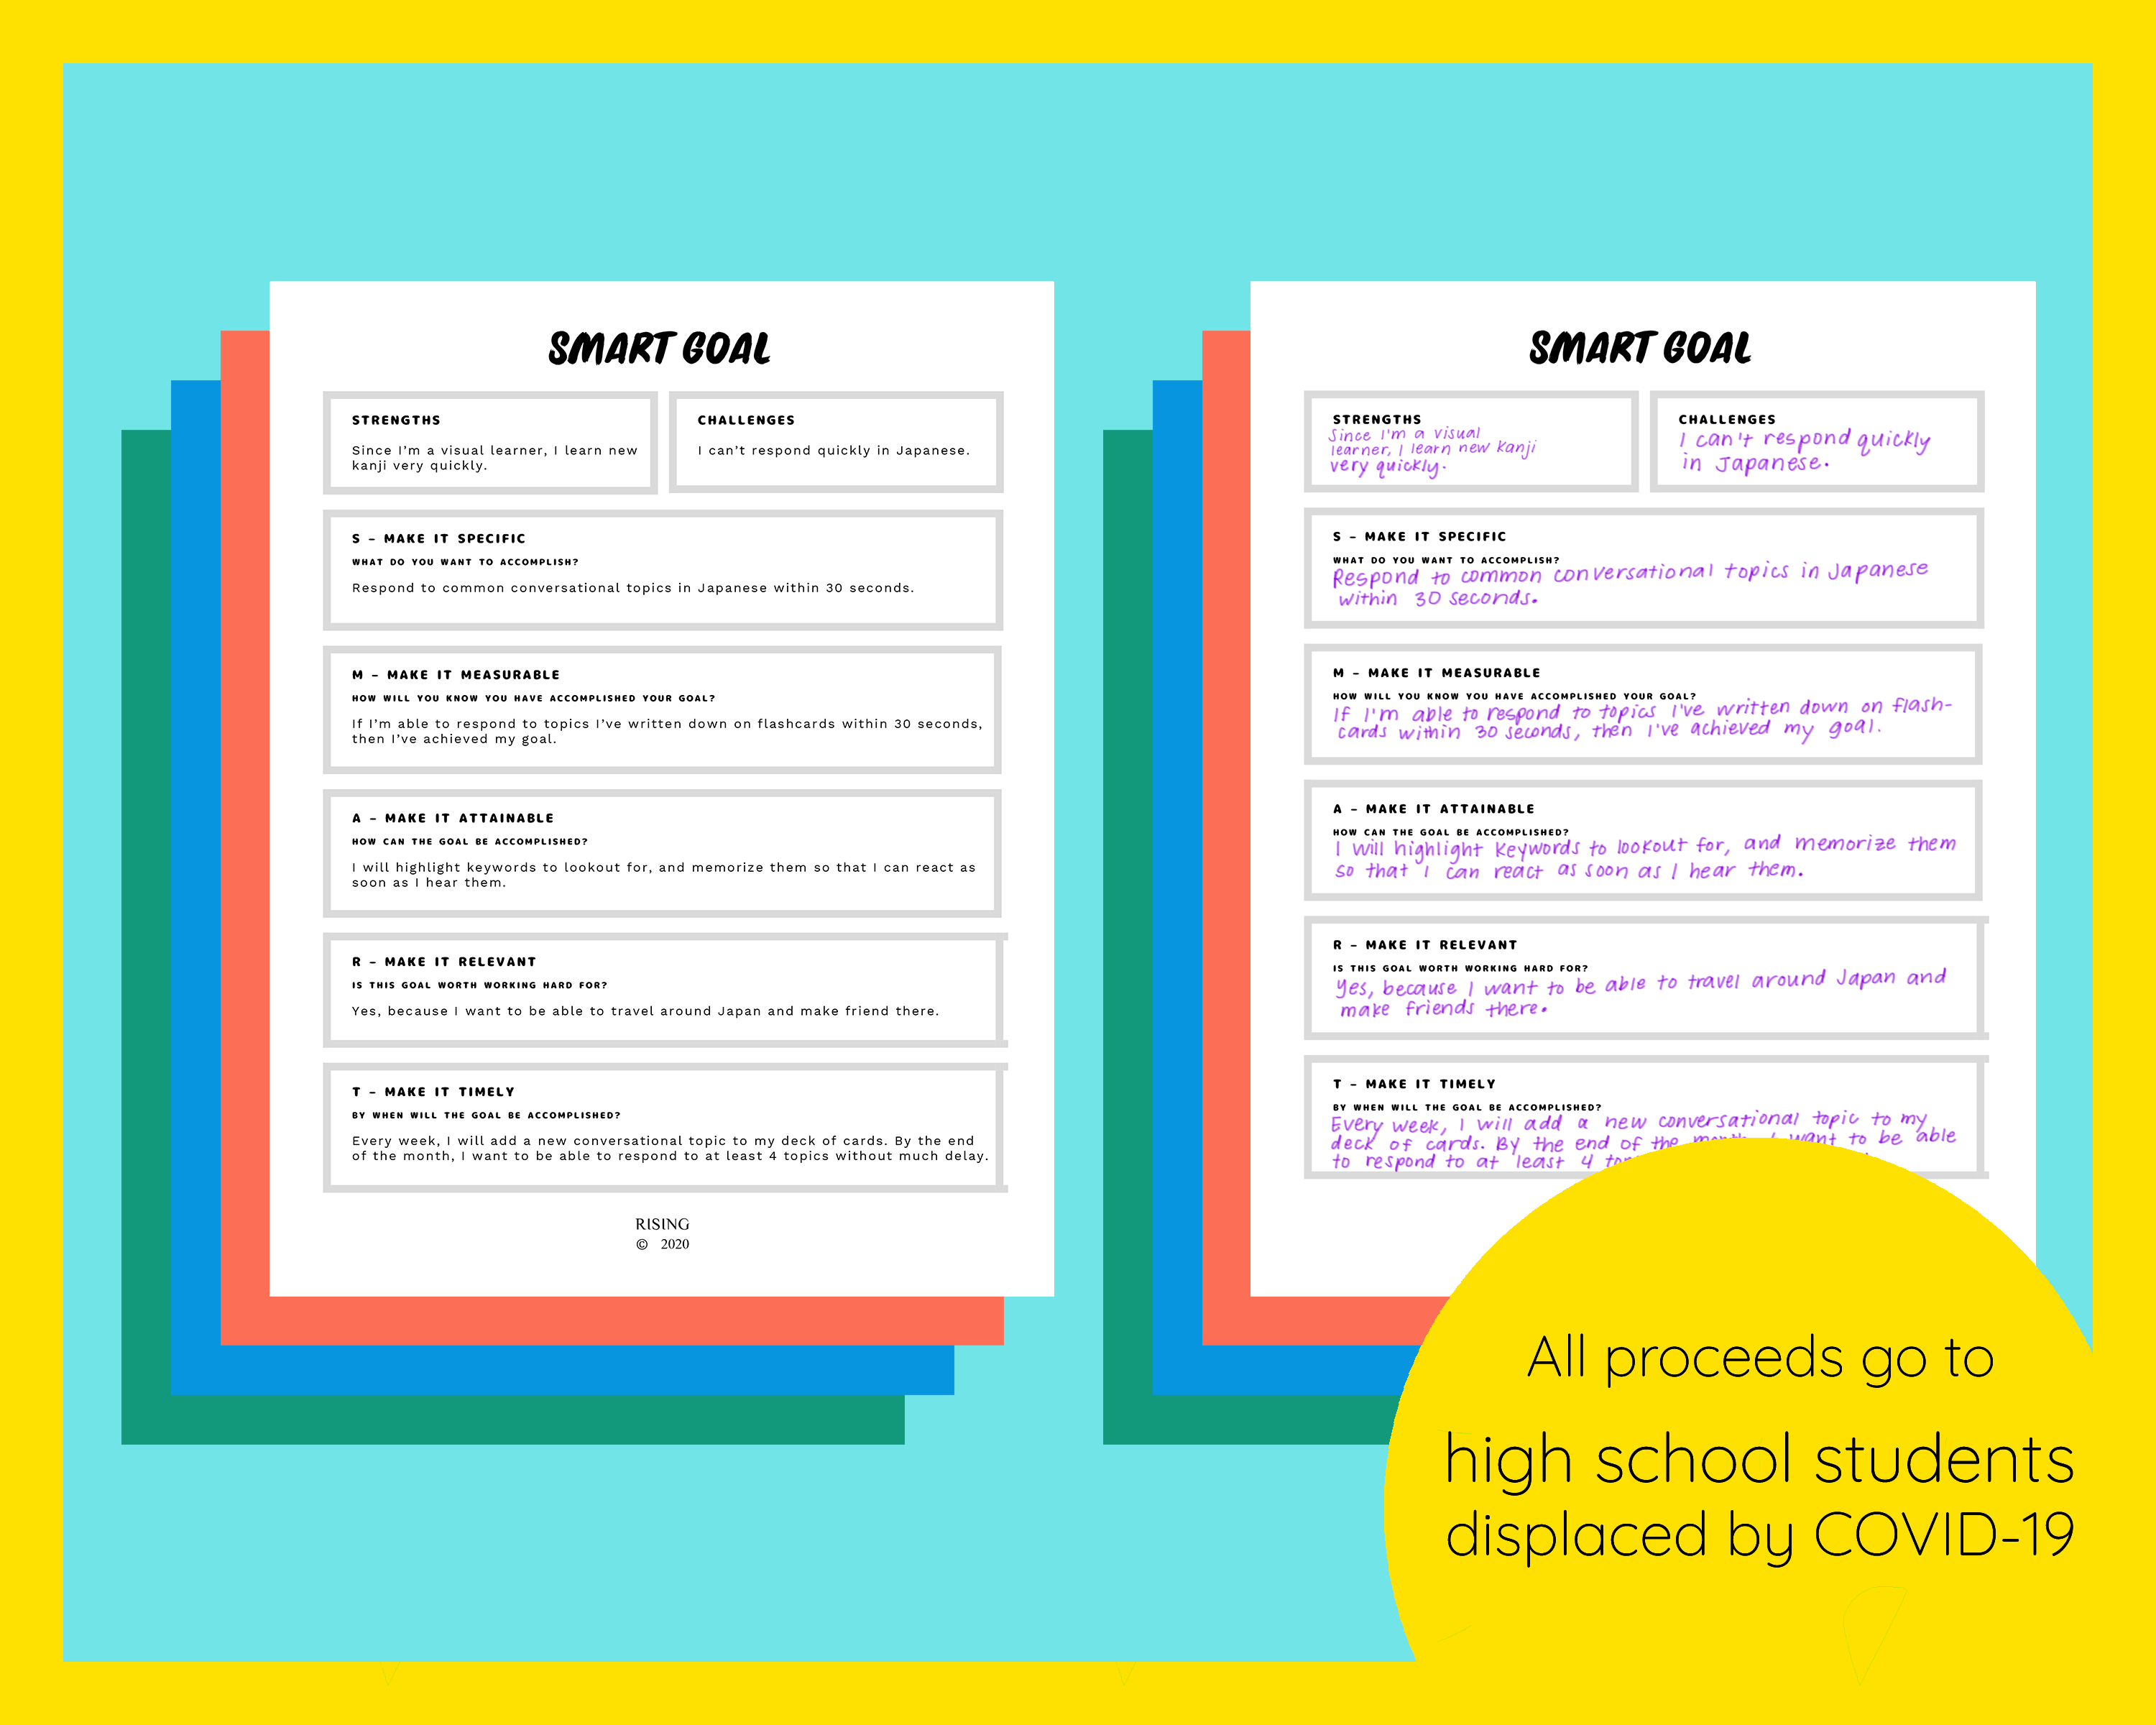 SMART GOAL
STRENGTHS
Since I'm a visual learner, I learn new
kanji very quickly.
CHALLENGES
I can't respond quickly in Japanese.
S - MAKE IT SPECIFIC
WHAT DO YOU WANT TO ACCOMPLISH?
Respond to common conversational topics in Japanese within 30 seconds.
M - MAKE IT MEASURABLE
HOW WILL YOU KNOW YOU HAVE ACCOMPLISHED YOUR GOAL?
If I'm able to respond to topics I've written down on flashcards within 30 seconds,
then I've achieved my goal.
A - MAKE IT ATTAINABLE
HOW CAN THE GOAL BE ACCOMPLISHED?
I will highlight keywords to lookout for, and memorize them so that I can react as
soon as I hear them.
R - MAKE IT RELEVANT
IS THIS GOAL WORTH WORKING HARD FOR?
Yes, because I want to be able to travel around Japan and make friend there.
T - MAKE IT TIMELY
BY WHEN WILL THE GOAL BE ACCOMPLISHED?
Every week, I will add a new conversational topic to my deck of cards. By the end
of the month, I want to be able to respond to at least 4 topics without much delay.
RISING
© 2020
SMART GOAL
STRENGTHS
Since I'm a visual
learner, I learn new kanji
very quickly.
CHALLENGES
I can't respond quickly
in Japanese.
S - MAKE IT SPECIFIC
WHAT DO YOU WANT TO ACCOMPLISH?
Respond to common conversational topics in Japanese
within 30 seconds.
M - MAKE IT MEASURABLE
HOW WILL YOU KNOW YOU HAVE ACCOMPLISHED YOUR GOAL?
If I'm able to respond to topics I've written down on flash-
cards within 30 seconds, then I've achieved my goal.
A - MAKE IT ATTAINABLE
HOW CAN THE GOAL BE ACCOMPLISHED?
I will highlight keywords to lookout for, and memorize them
so that I can react as soon as I hear them.
R - MAKE IT RELEVANT
IS THIS GOAL WORTH WORKING HARD FOR?
Yes, because I want to be able to travel around Japan and
make friends there.
T - MAKE IT TIMELY
BY WHEN WILL THE GOAL BE ACCOMPLISHED?
Every week, I will add a new conversational topic to my
deck of cards. By the end of the month I want to be able
to respond to at least 4
All proceeds go to
high school students
displaced by COVID-19